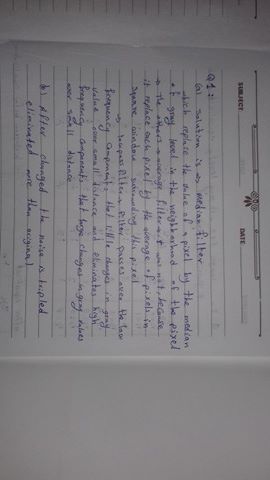 SUBJECT DATE
Q1:
(a) solution is => median filter
which replace the value of a pixel by the median
of gray level in the neighborhood of the pixel
→ The others → average filter → it was not, because
it replace each pixel by the average of pixels in
square window surrounding this pixel
→ lowpass filter → filter passes over the low
frequency components that little changes in gray
value over small distance and eliminates high
frequency components that large changes in gray values
over small distance
(b) After changed the noise is tripled
eliminated more than original